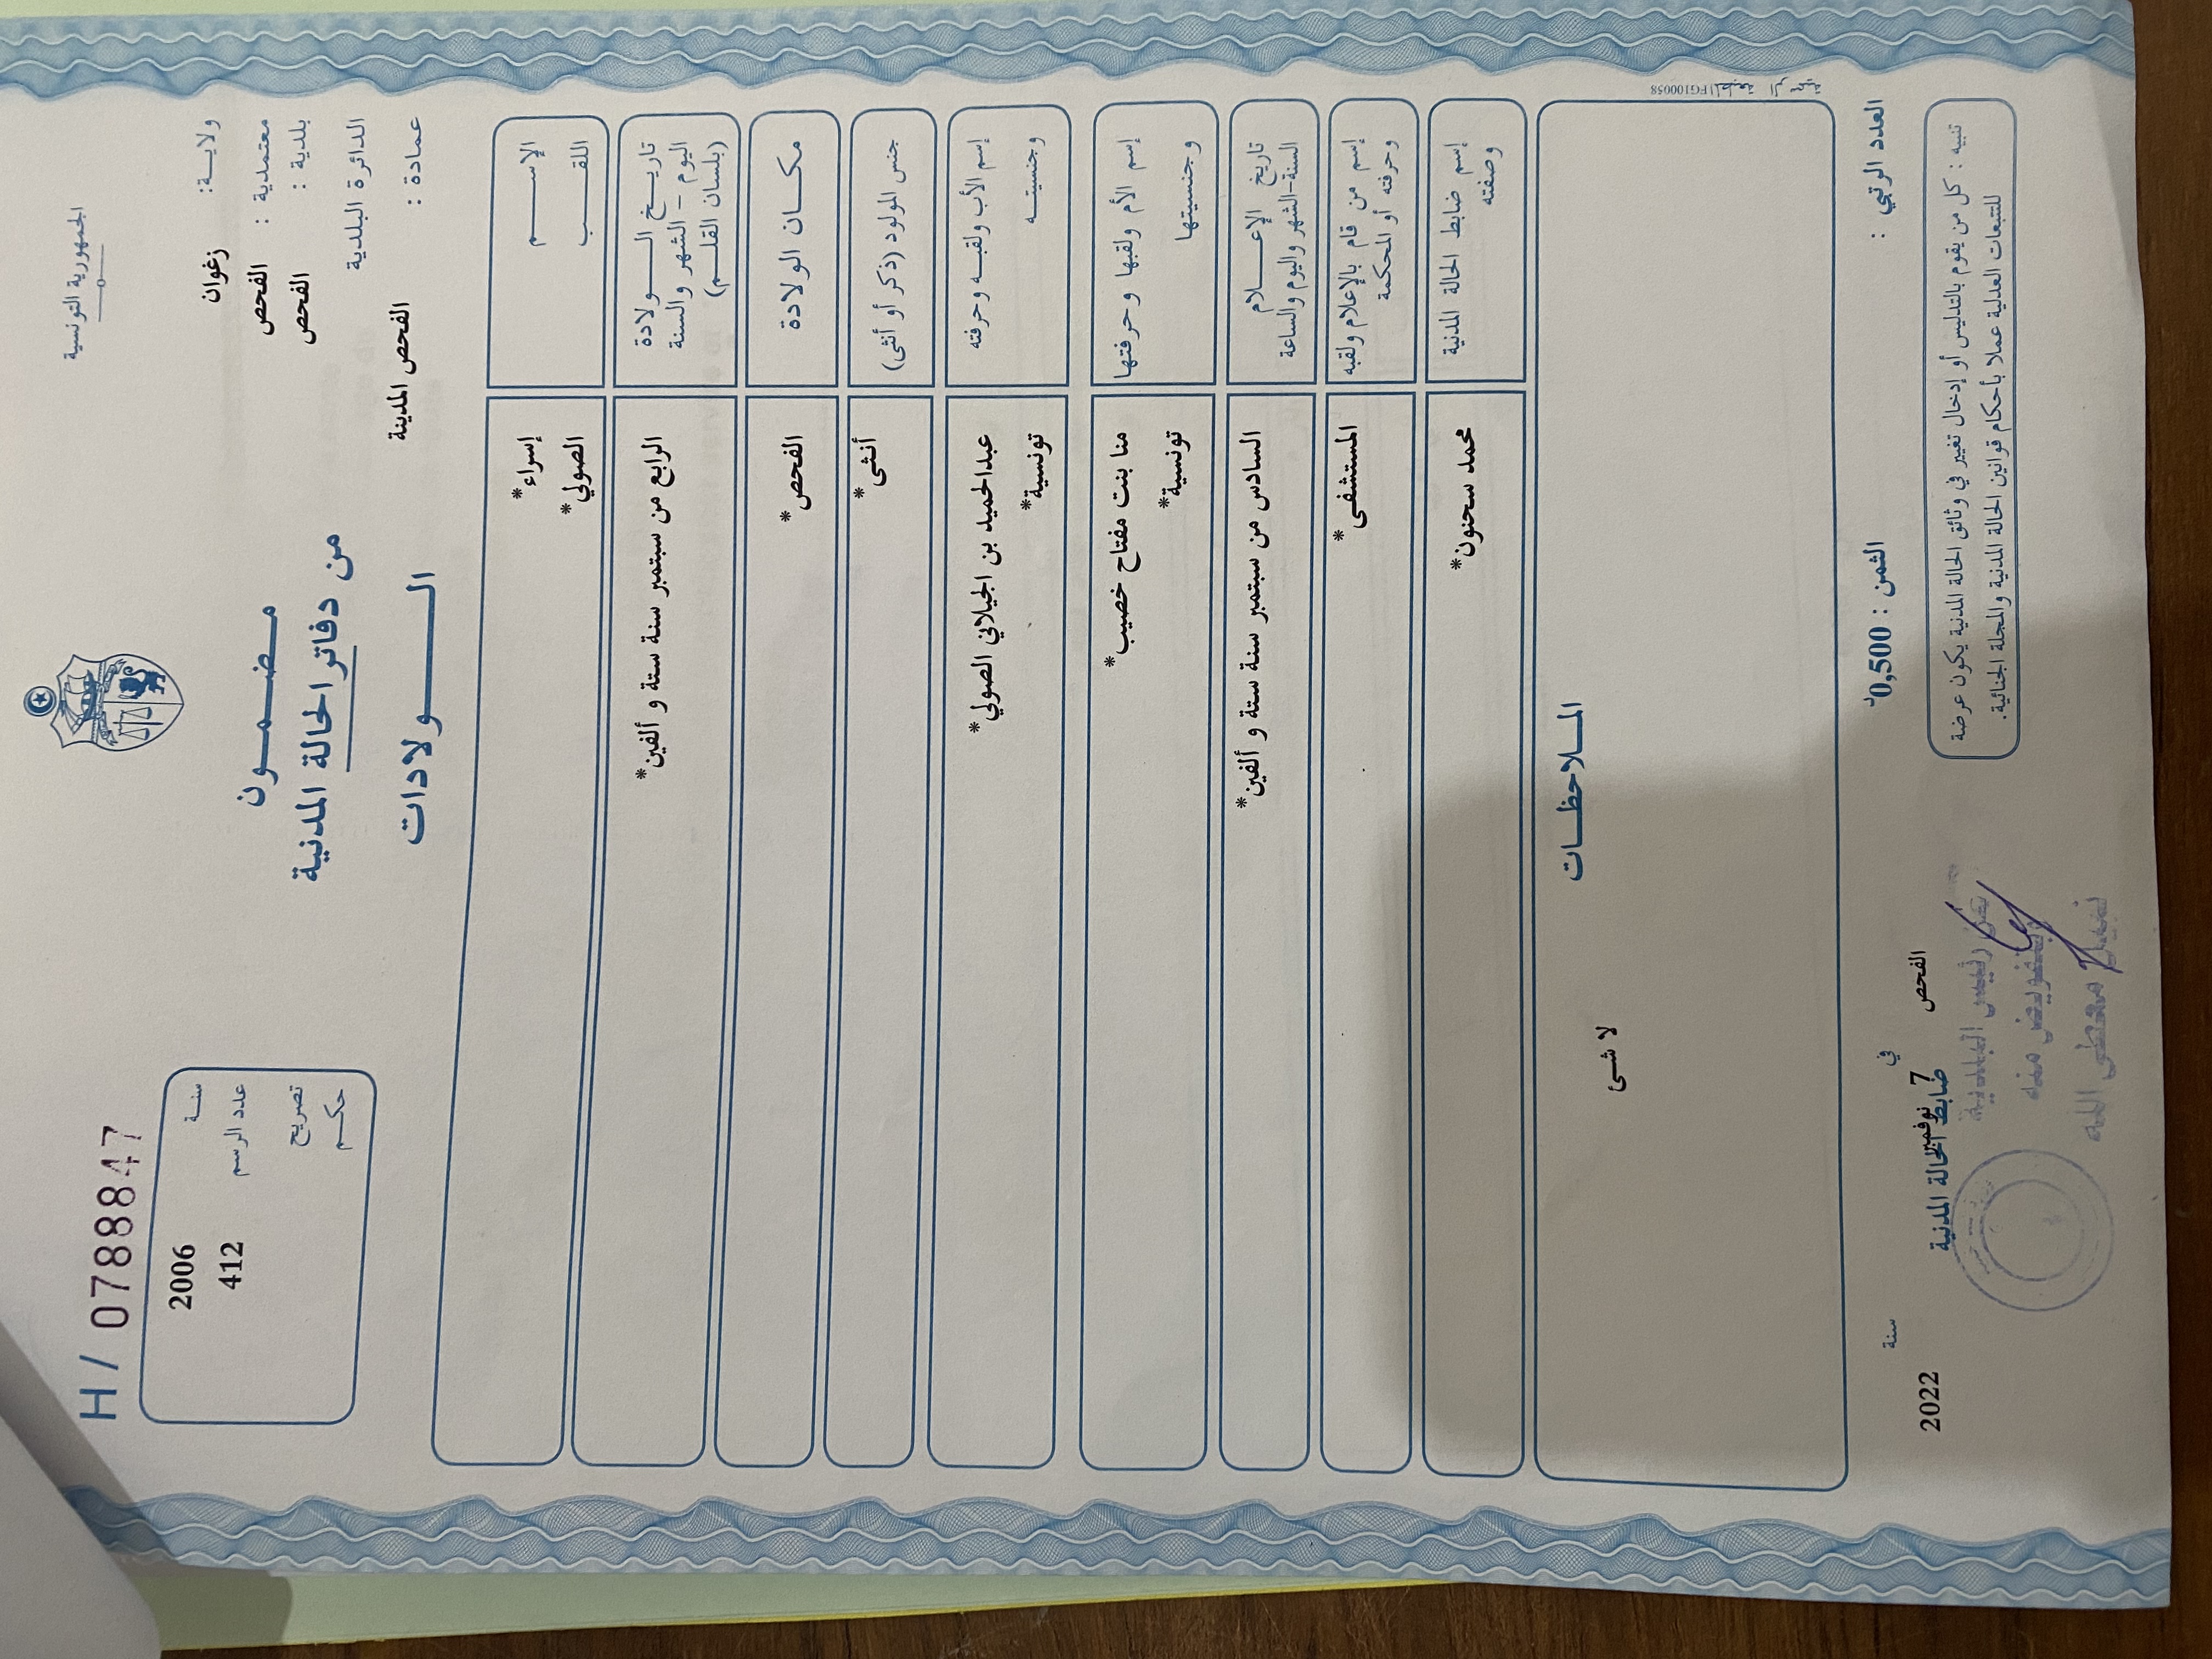 الجمهورية التونسية
H / 0788847
ولايــة: زغوان
معتمدية : الفحص
بلدية : الفحص
الدائرة البلدية
عمادة : الفحص المدينة
مضمــون
من دفاتر الحالة المدنية
الــولادات
سنــة 2006
عدد الرسم 412
تصريح
حكــم
الإســـم إسراء*
اللقــب الصولي*
تاريــخ الــولادة
اليوم - الشهر والسنة
(بلسان القلــم)
الرابع من سبتمبر سنة ستة و ألفين*
مكــان الولادة الفحص*
جنس المولود (ذكر أو أنثى) أنثى*
إسم الأب ولقبــه وحرفته عبدالحميد بن الجيلاني الصولي*
وجنسيتــه تونسية*
إسم الأم ولقبها وحرفتها منا بنت مفتاح خصيب*
وجنسيتها تونسية*
تاريخ الإعــــلام
السنة-الشهر واليوم والساعة
السادس من سبتمبر سنة ستة و ألفين*
إسم من قام بالإعلام ولقبه
وحرفته أو المحكمة
المستشفى*
إسم ضابط الحالة المدنية
وصفته
محمد سحنون*
الملاحظــات
لا شئ
العدد الرتبي :
الثمن : 0,500د
الفحص في 7 نوفمبر سنة 2022
ضابط الحالة المدنية
عن رئيس البلدية
بتفويض منه
تنبيه : كل من يقوم بالتدليس أو إدخال تغيير في وثائق الحالة المدنية يكون عرضة
للتتبعات العدلية عملا بأحكام قوانين الحالة المدنية والمجلة الجنائية.